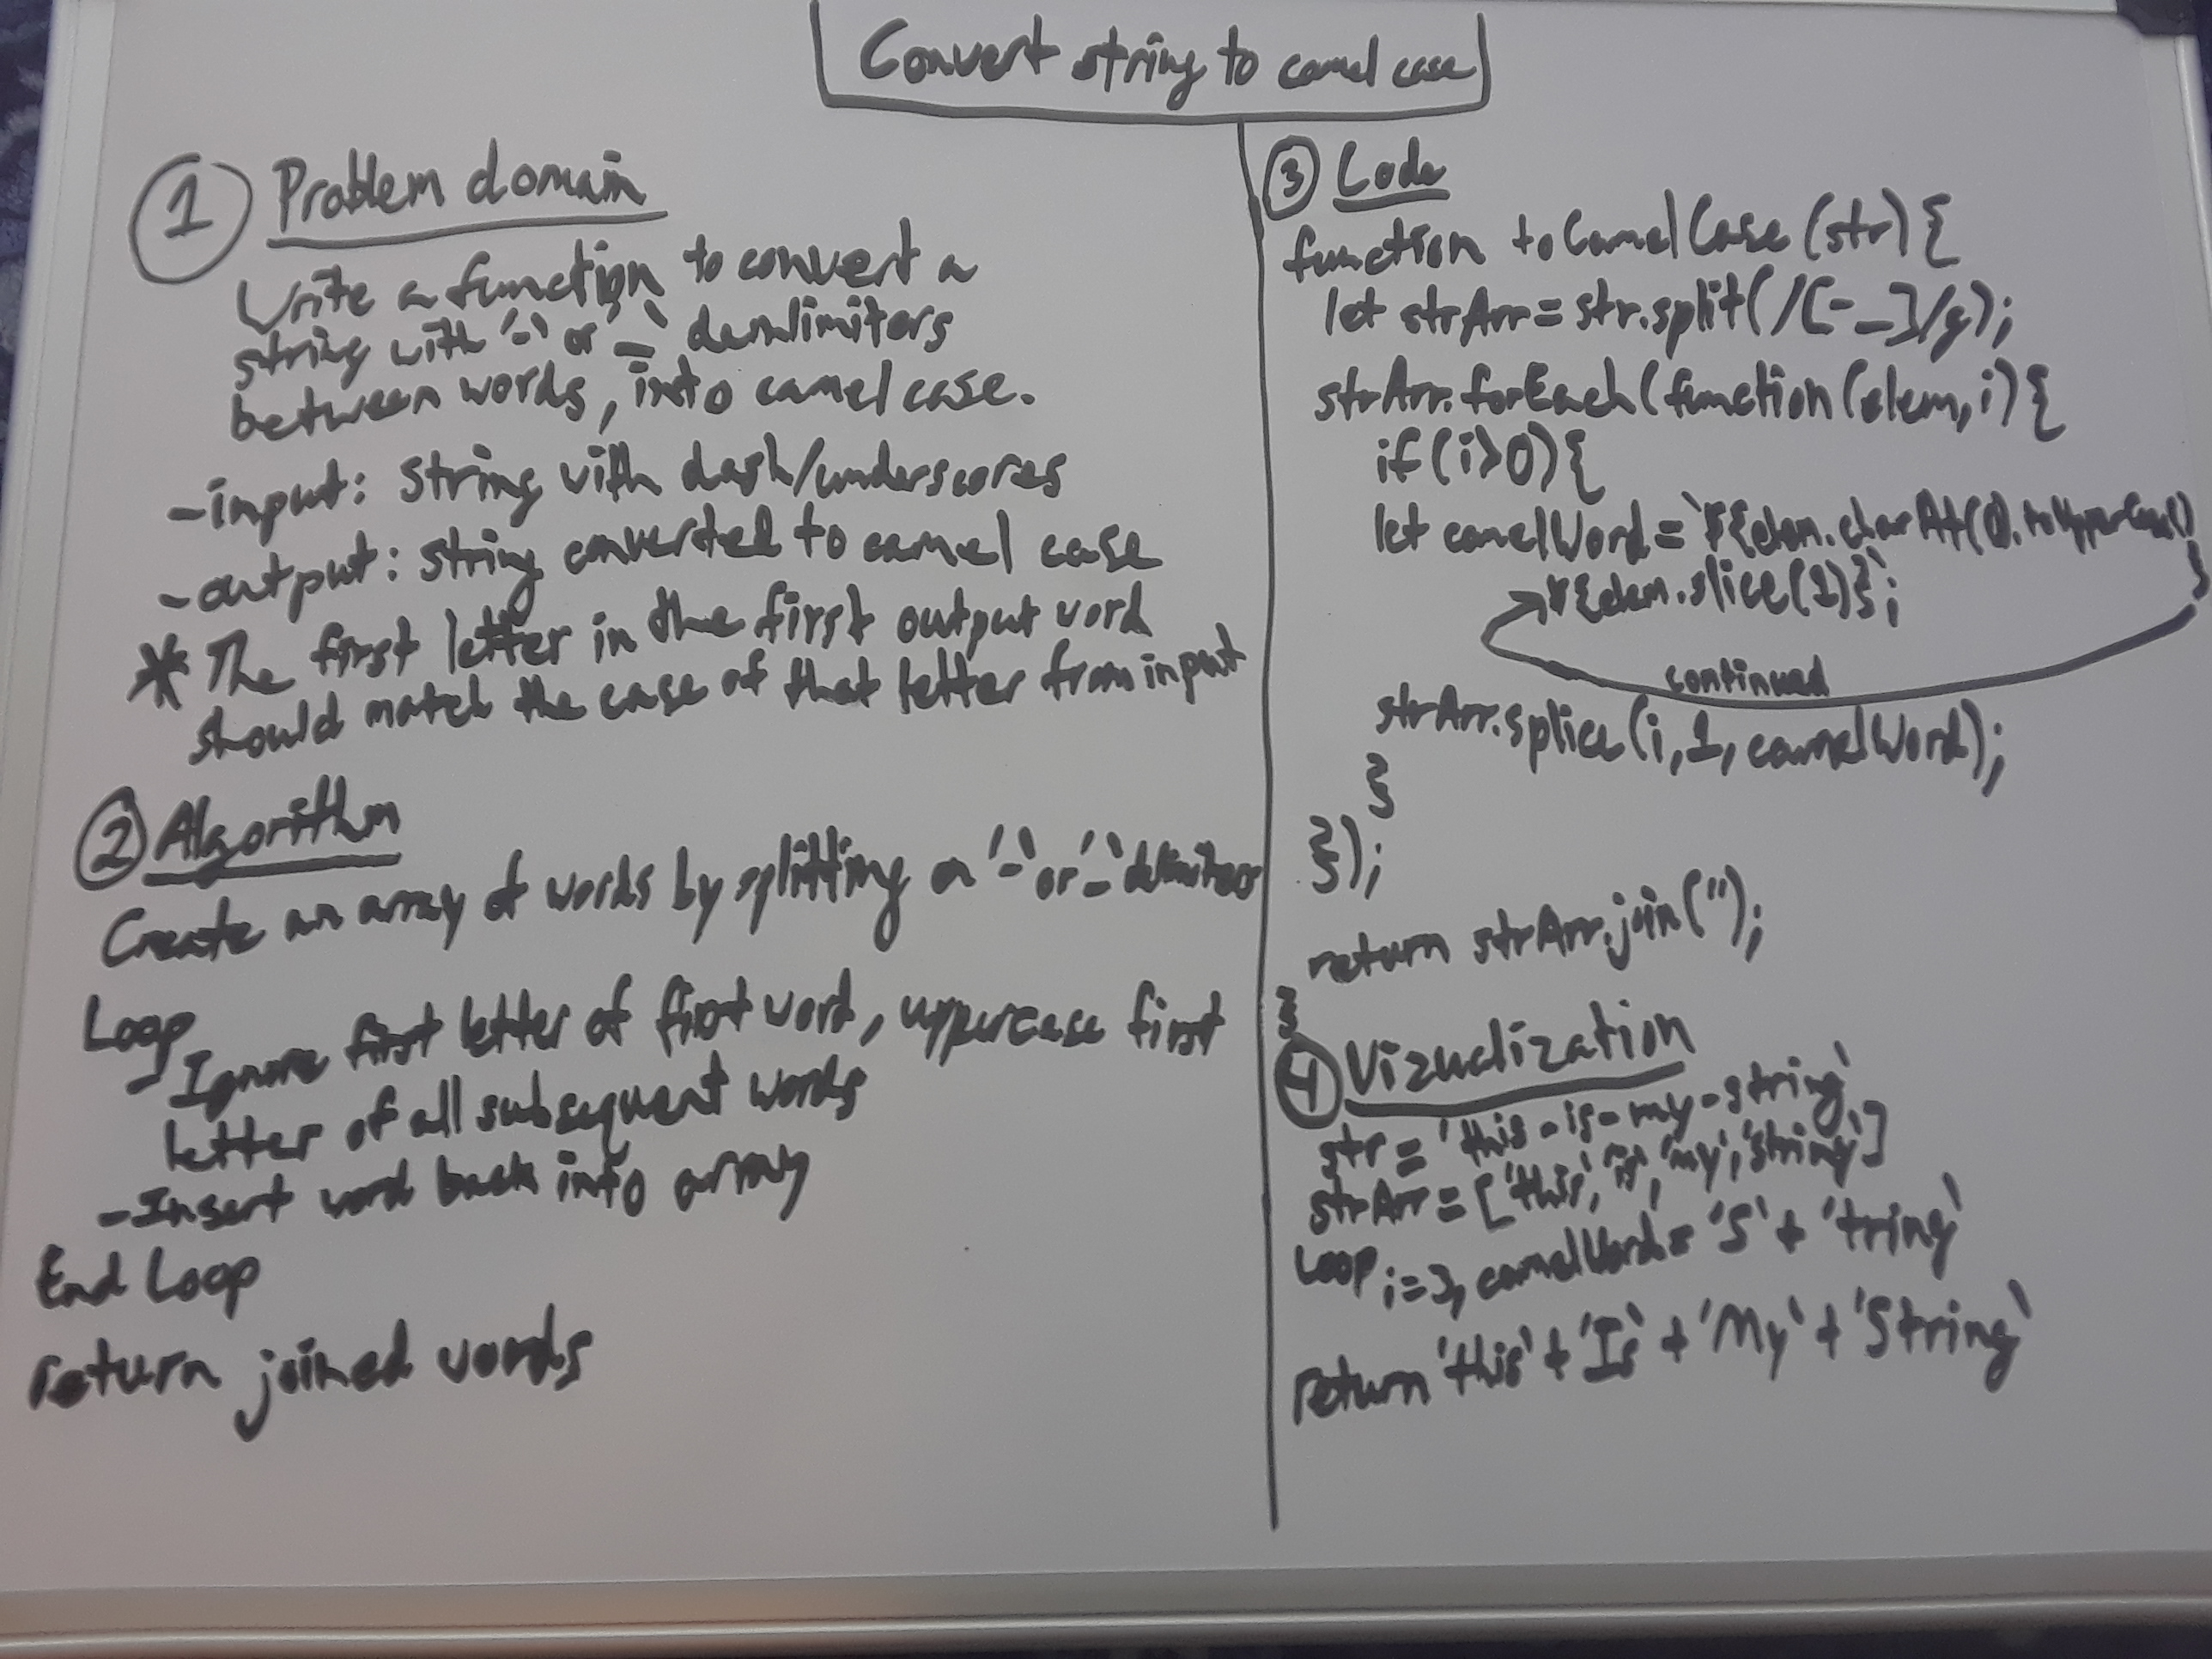 Convert string to camel case
① Problem domain
Write a function to convert a
string with '-' or '_' demlimitors
between words, into camel case.
- input: string with dash/underscores
- output: string converted to camel case
* The first letter in the first output word
should match the case of that letter from input
② Algorithm
Create an array of words by splitting a '-' or '_' delimitor
Loop
Ignore first letter of first word, uppercase first
letter of all subsequent words
- Insert word back into array
End Loop
return joined words
③ Code
function toCamelCase(str){
let strArr = str.split(/[-_]/g);
strArr.forEach(function(elem, i){
if(i>0){
let camelWord = `${elem.charAt(0).toUpperCase()}
${elem.slice(1)}`;
continued
strArr.splice(i, 1, camelWord);
}
});
return strArr.join('');
}
④ Vizualization
str = 'this-is-my-string'
strArr = ['this', 'is', 'my', 'string']
Loop i=3, camelWord = 'S' + 'tring'
return 'this' + 'Is' + 'My' + 'String'